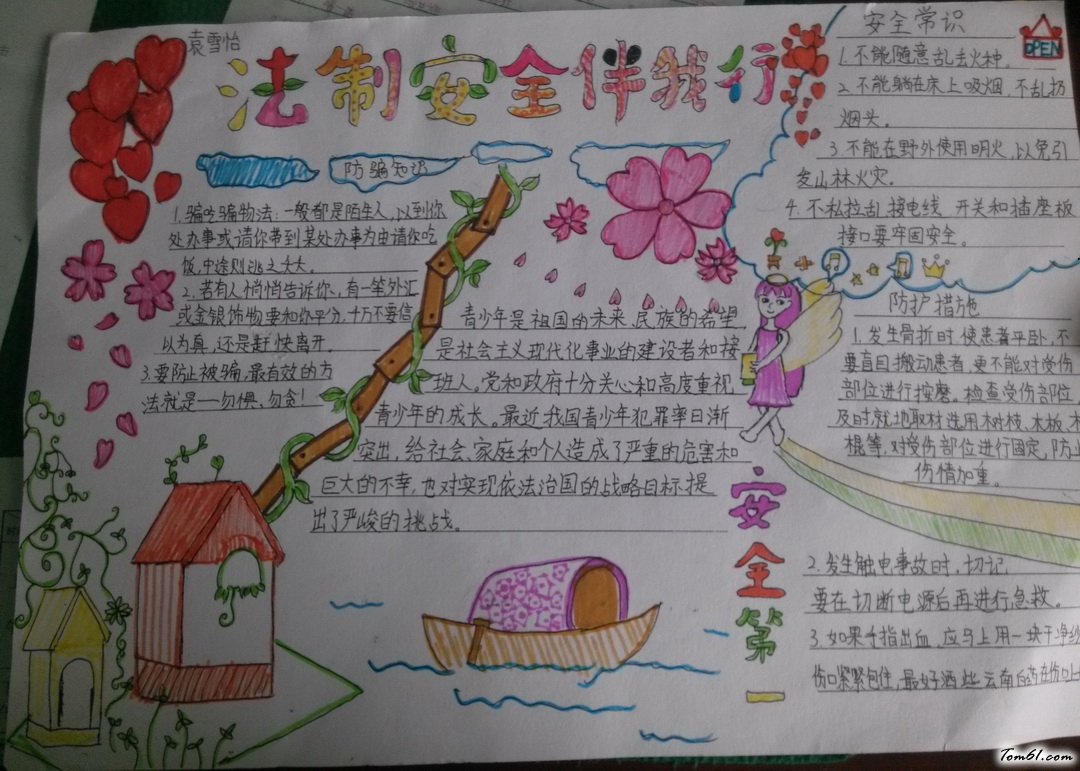 袁雪怡
法制安全伴我行
防骗知识
1.骗吃骗物法:一般都是陌生人,以到你
处办事或请你带到某处办事为由请你吃
饭,中途则逃之夭夭。
2.若有人悄悄告诉你,有一笔外汇
或金银饰物要和你平分,十万不要信
以为真,还是赶快离开
3.要防止被骗,最有效的方
法就是一勿惧、勿贪!
青少年是祖国的未来,民族的希望
是社会主义现代化事业的建设者和接
班人,党和政府十分关心和高度重视
青少年的成长。最近我国青少年犯罪率日渐
突出,给社会、家庭和个人造成了严重的危害和
巨大的不幸,也对实现依法治国的战略目标提
出了严峻的挑战。
安全常识
OPEN
1.不能随意乱丢火种。
2.不能躺在床上吸烟,不乱扔
烟头。
3.不能在野外使用明火,以免引
发山林火灾。
4.不私拉乱接电线 开关和插座板
接口要牢固安全。
防护措施
1.发生骨折时使患者平卧,不
要盲目搬动患者,更不能对受伤
部位进行按摩。检查受伤部位
及时就地取材选用树枝、木板、木
棍等,对受伤部位进行固定,防止
伤情加重。
2.发生触电事故时,切记
要在切断电源后再进行急救。
3.如果手指出血,应马上用一块干净纱
伤口紧紧包住,最好洒些云南白药在伤口上
安全第一
Tom61.com